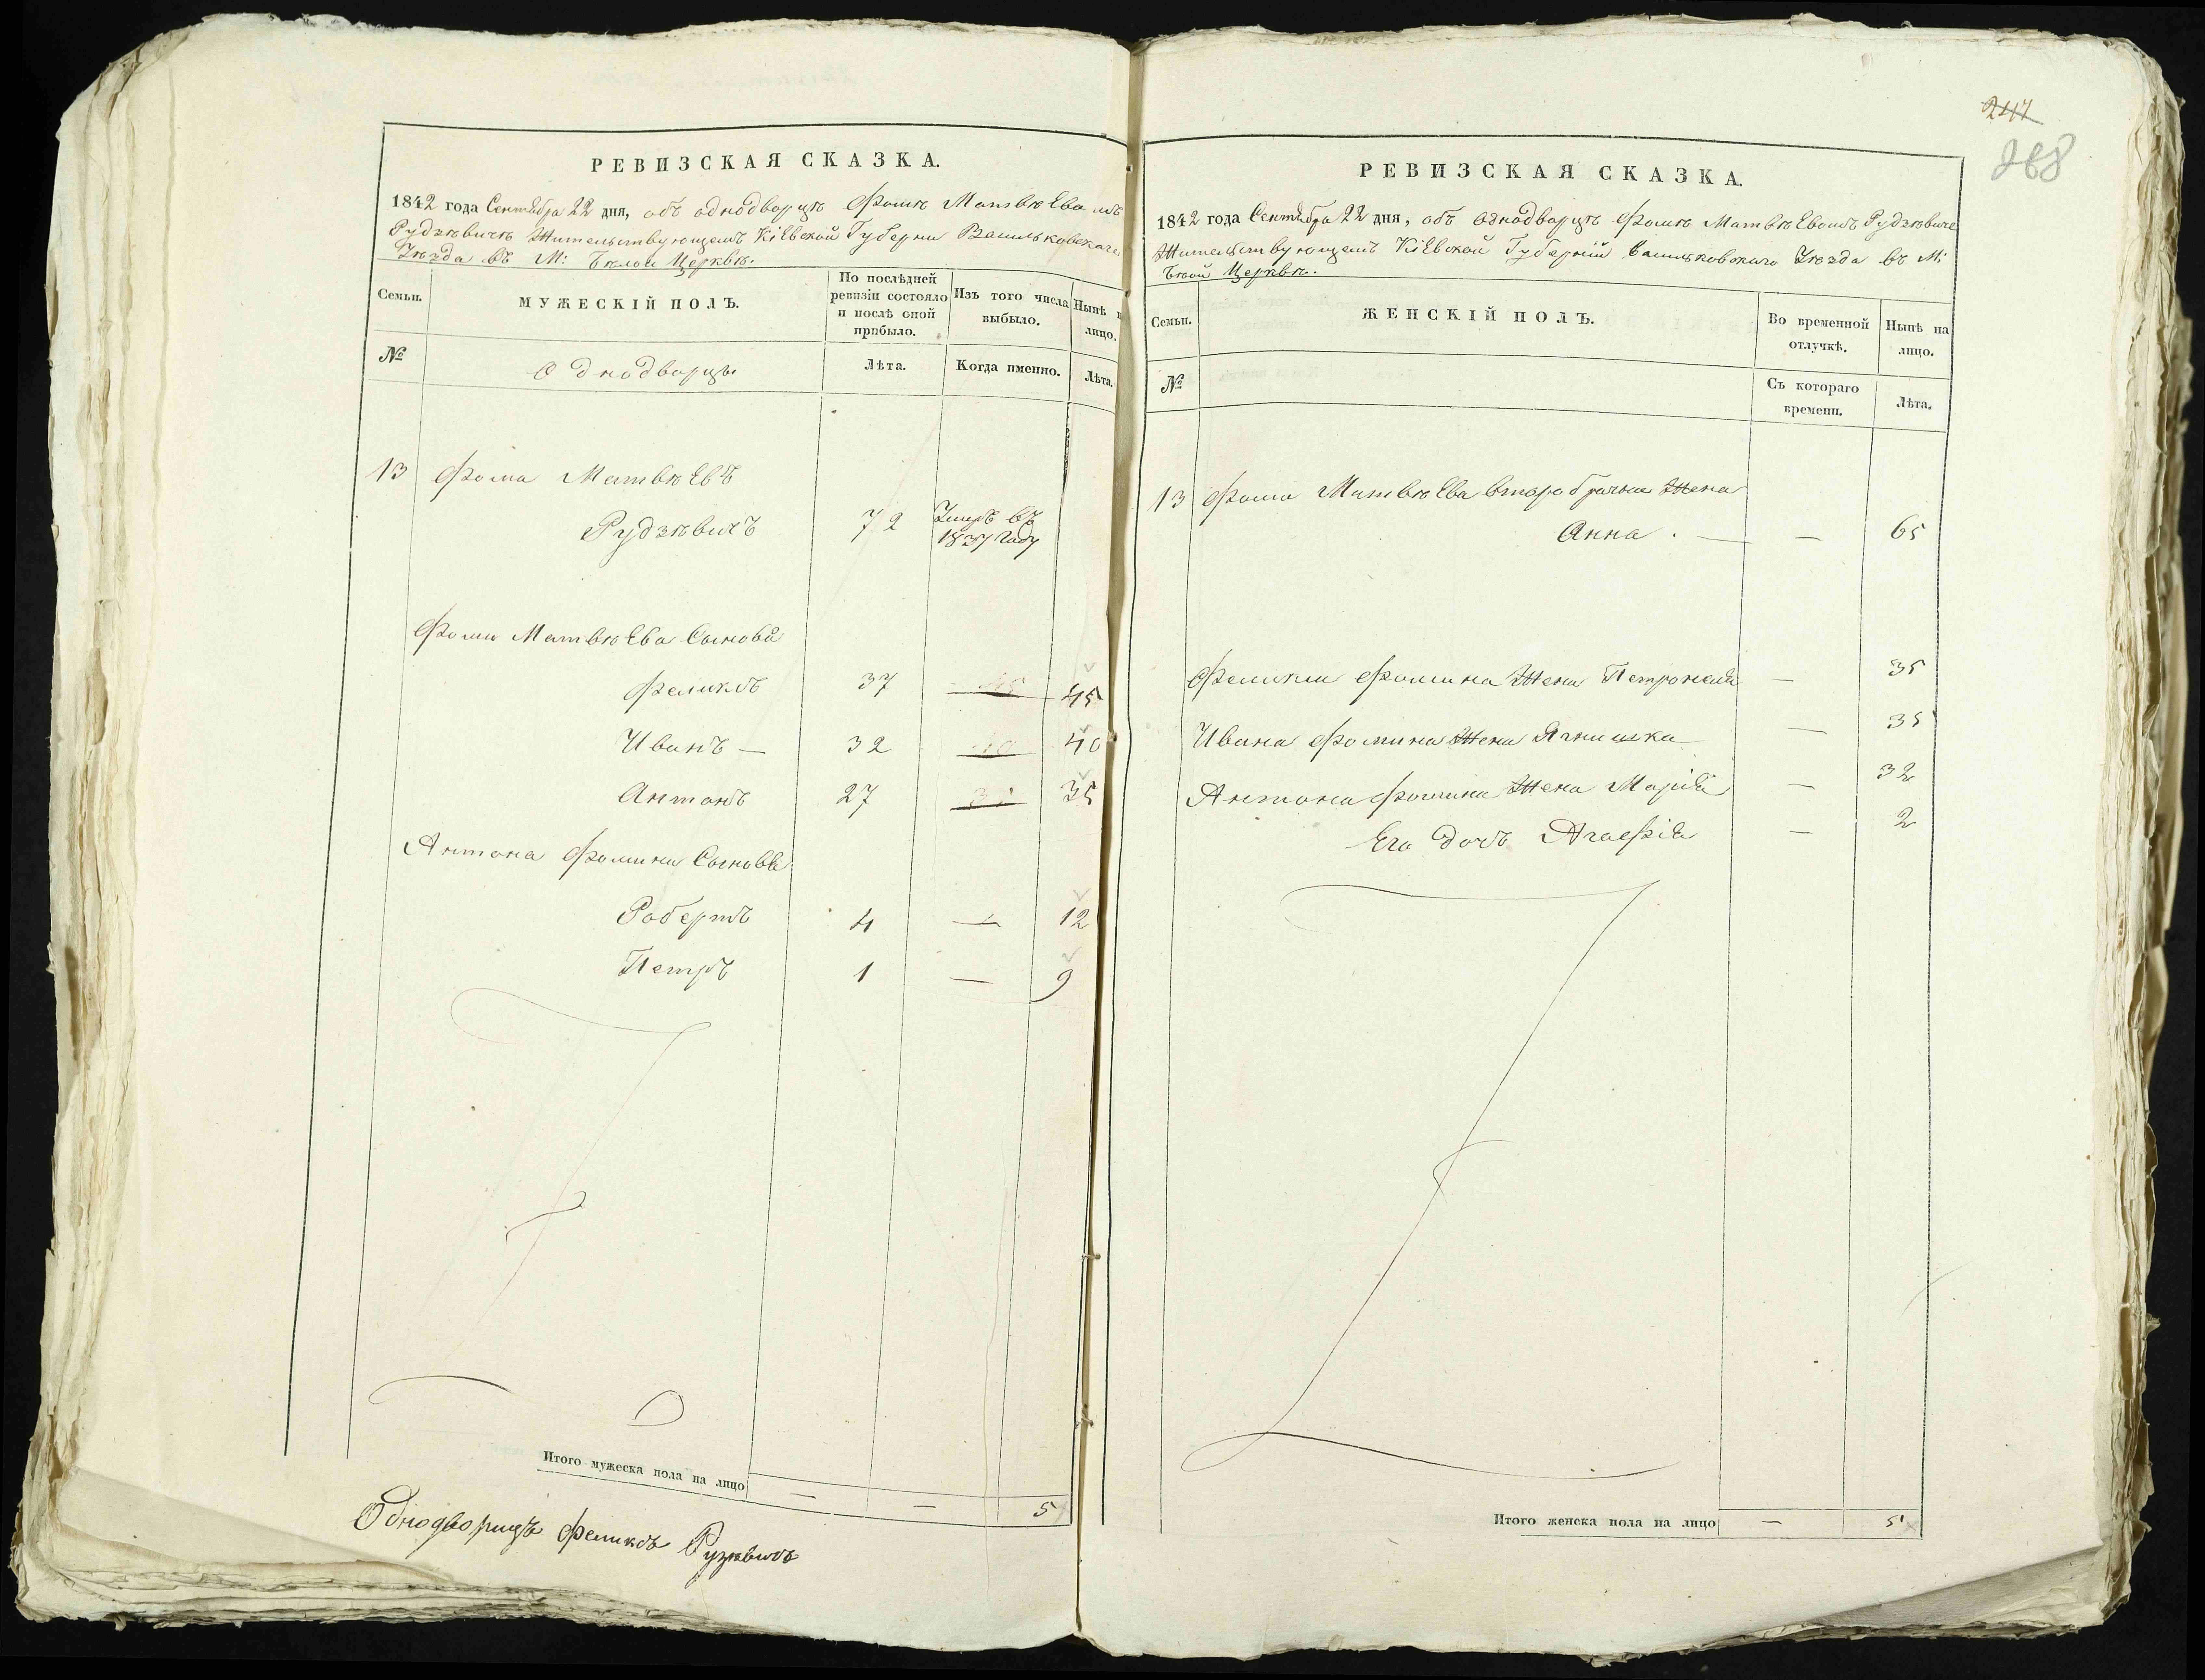 РЕВИЗСКАЯ СКАЗКА.
1842 года Сентября 22 дня, объ однодворцѣ Фомѣ Матвѣевомъ
Рудзѣвичѣ Жительствующемъ Кіевской Губерни Васильковскаго
Уѣзда въ М: Бѣлой Церквѣ.
Семьи.
МУЖЕСКІЙ ПОЛЪ.
По послѣдней ревизіи состояло и послѣ оной прибыло.
Изъ того числа выбыло.
Нынѣ лицо.
№
Однодворцы
Лѣта.
Когда именно.
Лѣта.
13 Фома Матвѣевъ
Рудзѣвичъ 72 Умеръ въ
1837 Году
Фомы Матвѣева Сыновя
Феликсъ 37 — 45
Иванъ — 32 — 40
Антонъ 27 — 35
Антона Фомина Сыновя
Робертъ 4 — 12
Петръ 1 — 9
Итого мужеска пола на лицо — — 5
Однодворецъ Феликсъ Рузѣвичъ
247
268
РЕВИЗСКАЯ СКАЗКА.
1842 года Сентября 22 дня, объ Однодворцѣ Фомѣ Матвѣевомъ Рудзѣвиче
Жительствующемъ Кіевской Губерніи Васильковскаго Уѣзда въ М:
Бѣой Церквѣ.
Семьи.
ЖЕНСКІЙ ПОЛЪ.
Во временной отлучкѣ.
Нынѣ на лицо.
№
Съ котораго времени.
Лѣта.
13 Фомы Матвѣева второбрачна Жена
Анна . — — 65
Феликса Фомина Жена Петронеля — 35
Ивана Фомина Жена Ягнишка — 35
Антона Фомина Жена Марія — 32
Его дочь Агафія — 2
Итого женска пола на лицо — 5